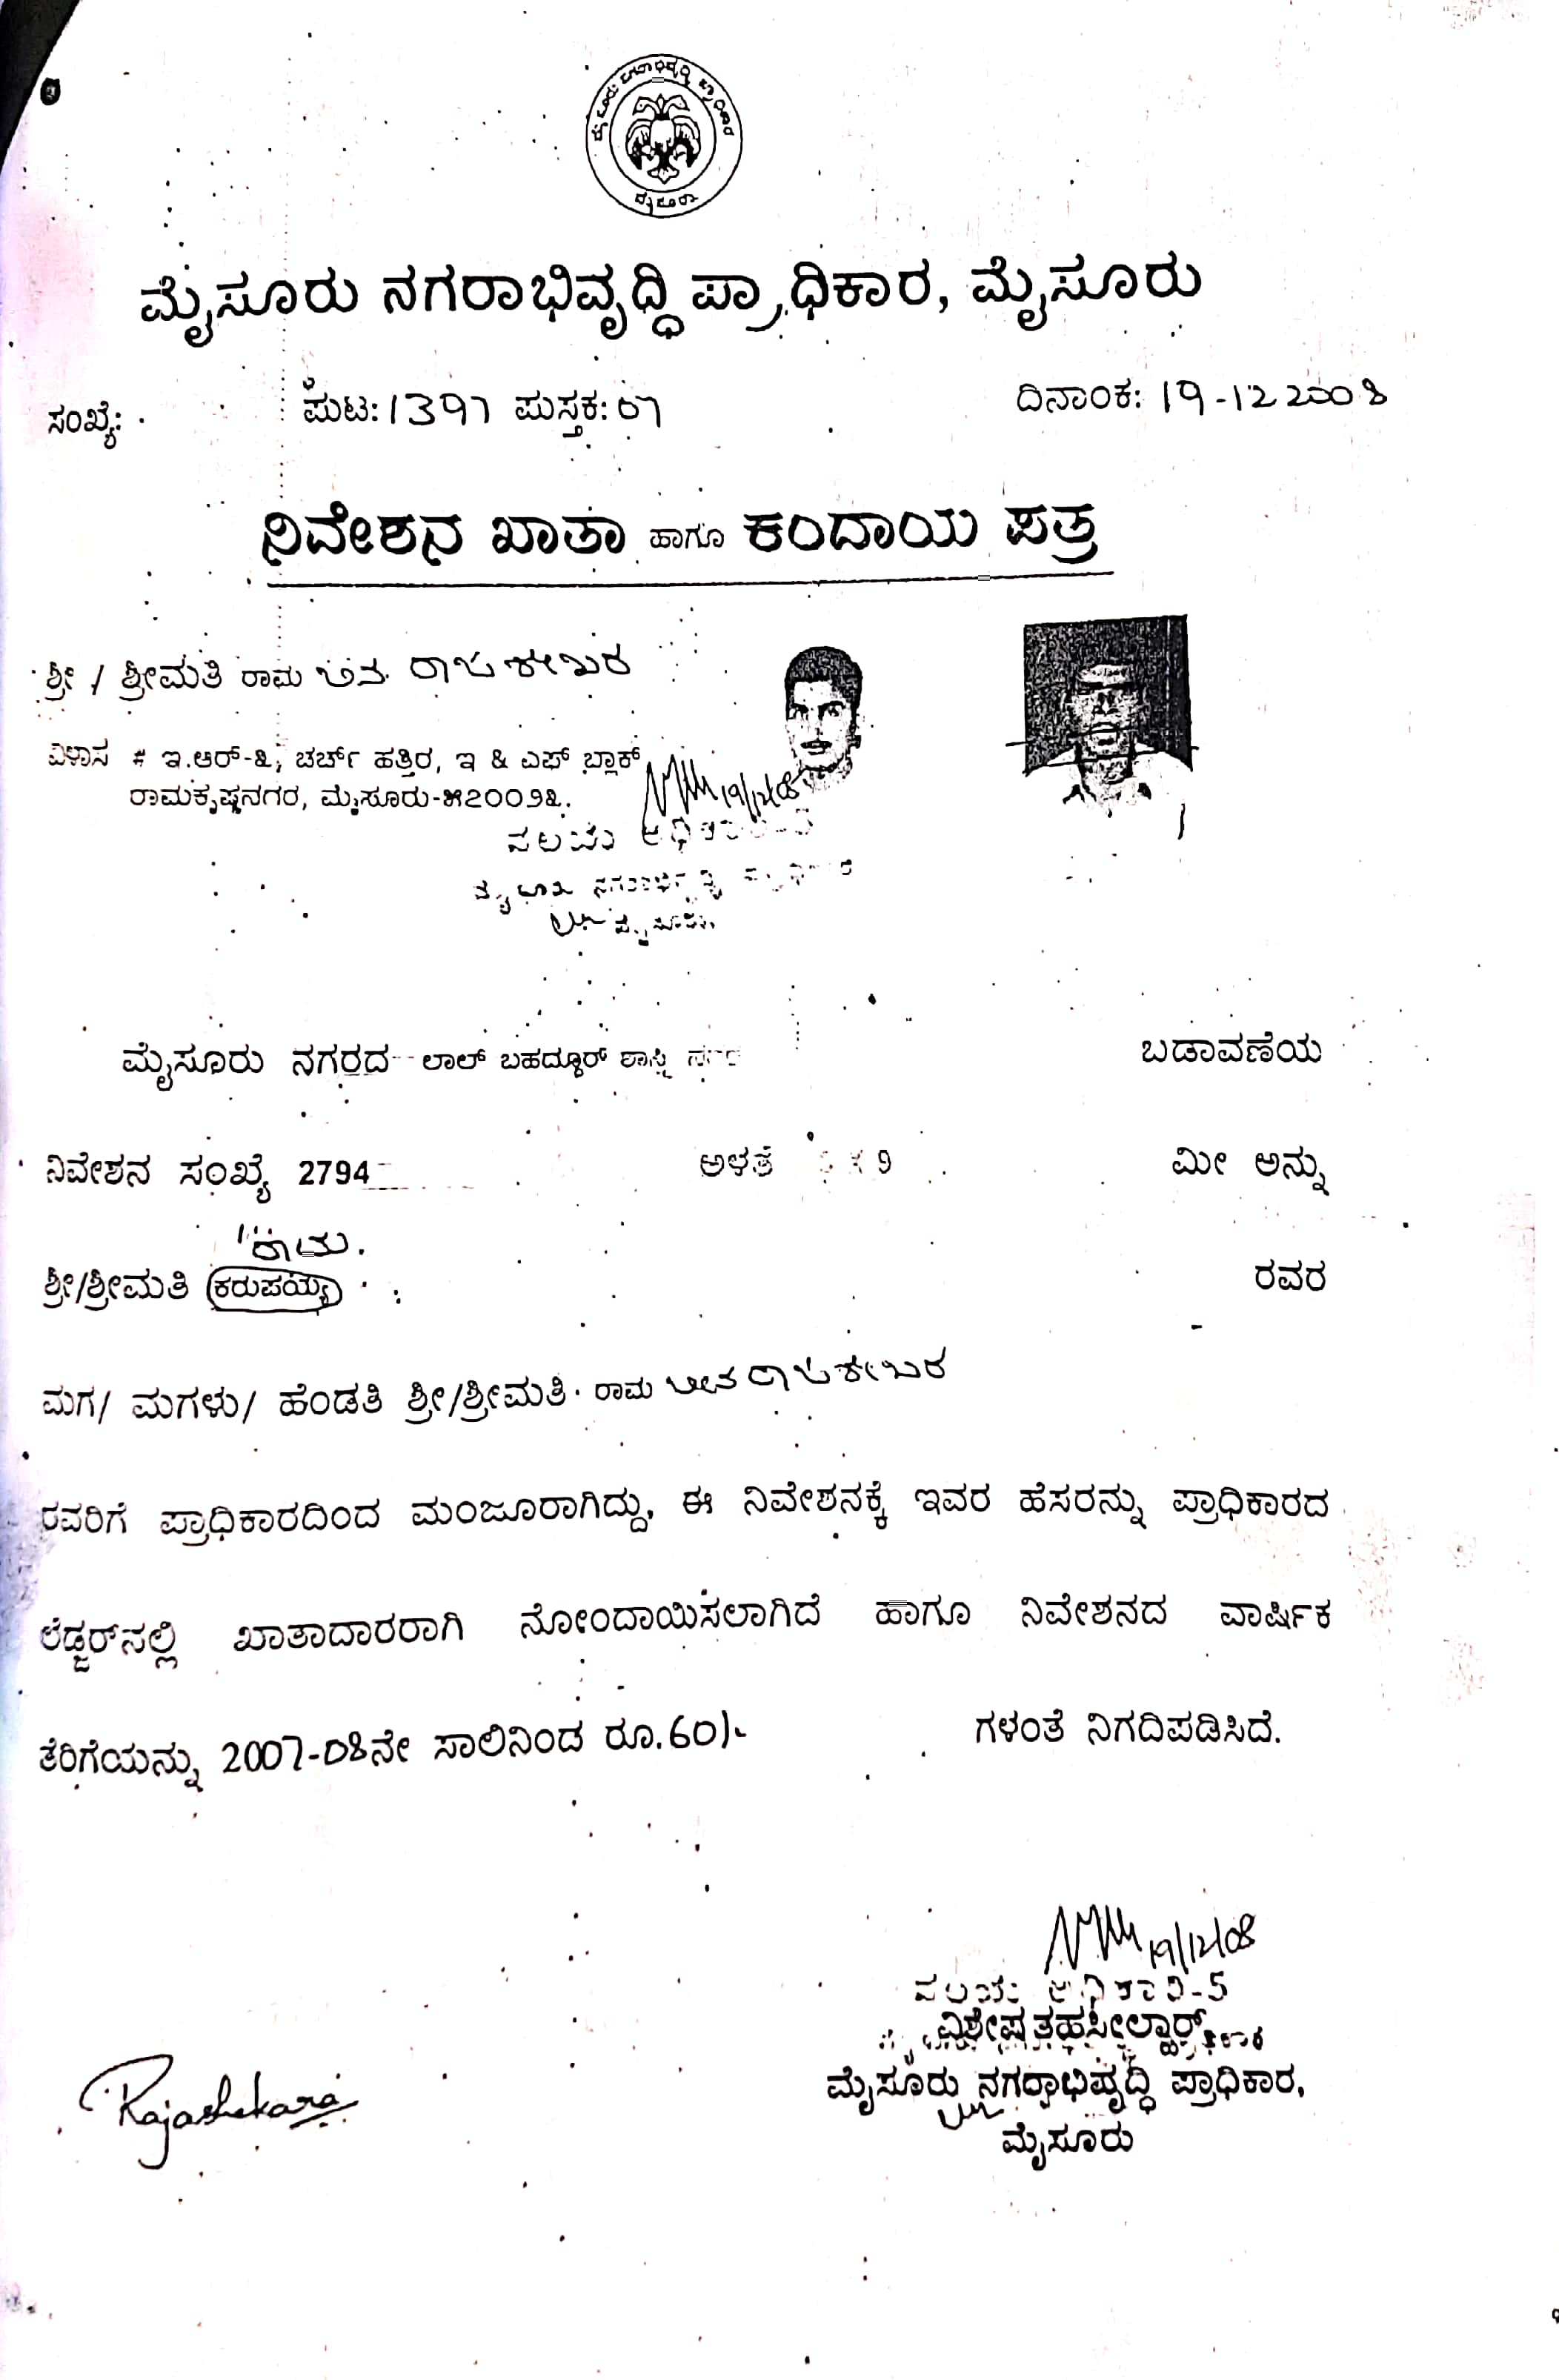 ಮೈಸೂರು ನಗರಾಭಿವೃದ್ಧಿ ಪ್ರಾಧಿಕಾರ
ಮೈಸೂರು
ಮೈಸೂರು ನಗರಾಭಿವೃದ್ಧಿ ಪ್ರಾಧಿಕಾರ, ಮೈಸೂರು
ಸಂಖ್ಯೆ: ಪುಟ: 1397 ಪುಸ್ತಕ: 07 ದಿನಾಂಕ: 19-12 2008
ನಿವೇಶನ ಖಾತಾ ಹಾಗೂ ಕಂದಾಯ ಪತ್ರ
ಶ್ರೀ / ಶ್ರೀಮತಿ ರಾಮ ರಾಜಶೇಖರ
ವಿಳಾಸ # ಇ.ಆರ್-೩, ಚರ್ಚ್ ಹತ್ತಿರ, ಇ & ಎಫ್ ಬ್ಲಾಕ್
ರಾಮಕೃಷ್ಣನಗರ, ಮೈಸೂರು-೫೭೦೦೨೩.
19/12/08
ವಲಯ ಅಧಿಕಾರಿ-5
ಮೈಸೂರು ನಗರಾಭಿವೃದ್ಧಿ ಪ್ರಾಧಿಕಾರ
ಮೈಸೂರು
ಮೈಸೂರು ನಗರದ ಲಾಲ್ ಬಹದ್ದೂರ್ ಶಾಸ್ತ್ರಿ ನಗರ ಬಡಾವಣೆಯ
ನಿವೇಶನ ಸಂಖ್ಯೆ 2794 ಅಳತೆ 9 ಮೀ ಅನ್ನು
ರಾಮ.
ಶ್ರೀ/ಶ್ರೀಮತಿ ಕರುಪಯ್ಯಾ ರವರ
ಮಗ/ ಮಗಳು/ ಹೆಂಡತಿ ಶ್ರೀ/ಶ್ರೀಮತಿ ರಾಮ ರಾಜಶೇಖರ
ರವರಿಗೆ ಪ್ರಾಧಿಕಾರದಿಂದ ಮಂಜೂರಾಗಿದ್ದು, ಈ ನಿವೇಶನಕ್ಕೆ ಇವರ ಹೆಸರನ್ನು ಪ್ರಾಧಿಕಾರದ
ಲೆಡ್ಜರ್‌ನಲ್ಲಿ ಖಾತಾದಾರರಾಗಿ ನೋಂದಾಯಿಸಲಾಗಿದೆ ಹಾಗೂ ನಿವೇಶನದ ವಾರ್ಷಿಕ
ತೆರಿಗೆಯನ್ನು 2007-08ನೇ ಸಾಲಿನಿಂದ ರೂ.60/- ಗಳಂತೆ ನಿಗದಿಪಡಿಸಿದೆ.
19/12/08
ವಲಯ ಅಧಿಕಾರಿ-5
ವಿಶೇಷ ತಹಸೀಲ್ದಾರ್,
ಮೈಸೂರು ನಗರಾಭಿವೃದ್ಧಿ ಪ್ರಾಧಿಕಾರ,
ಮೈಸೂರು
Rajashekara